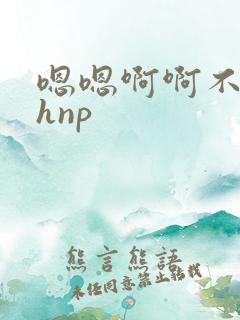 嗯嗯啊啊不
hnp
熊言熊語
未经同意禁止转载